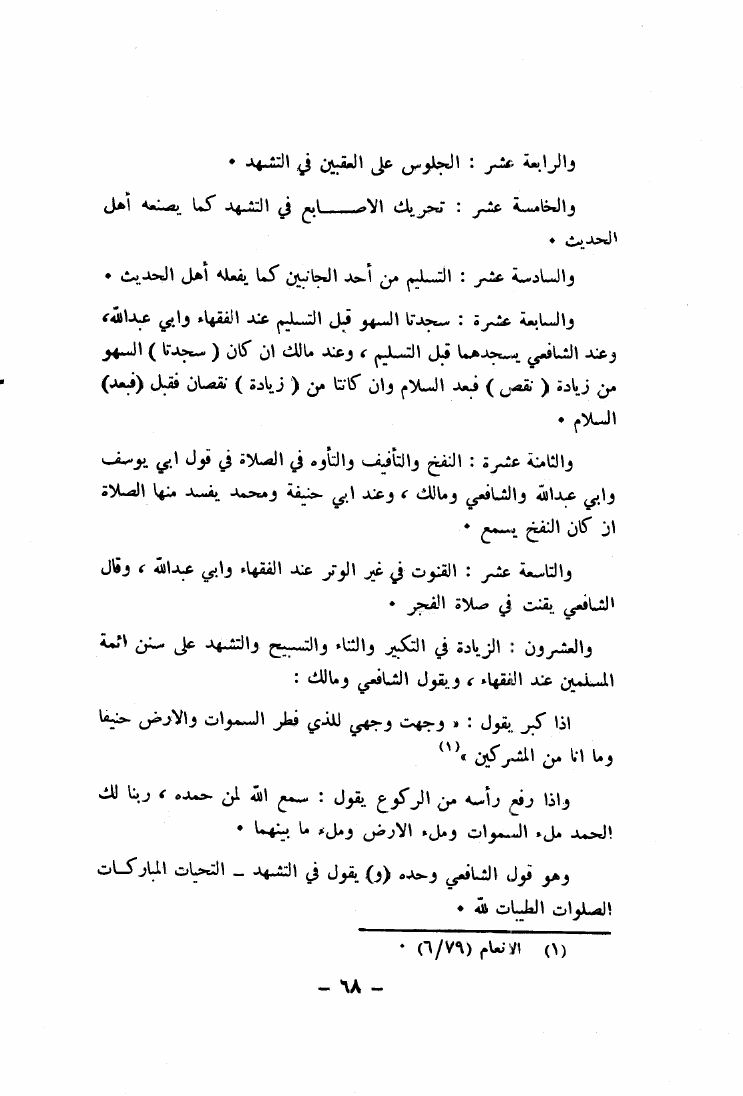 والرابعة عشر : الجلوس على العقبين في التشهد •
والخامسة عشر : تحريك الاصـــابع في التشهد كما يصنعه أهل
الحديث •
والسادسة عشر : التسليم من أحد الجانبين كما يفعله أهل الحديث •
والسابعة عشرة : سجدتا السهو قبل التسليم عند الفقهاء وابي عبدالله،
وعند الشافعي يسجدهما قبل التسليم ، وعند مالك ان كان ( سجدتا ) السهو
من زيادة ( نقص ) فبعد السلام وان كانتا من ( زيادة ) نقصان فقبل (فبعد)
السلام •
والثامنة عشرة : النفخ والتأفيف والتأوه في الصلاة في قول ابي يوسف
وابي عبدالله والشافعي ومالك ، وعند ابي حنيفة ومحمد يفسد منها الصلاة
ان كان النفخ يسمع •
والتاسعة عشر : القنوت في غير الوتر عند الفقهاء وابي عبدالله ، وقال
الشافعي يقنت في صلاة الفجر •
والعشرون : الزيادة في التكبير والثناء والتسبيح والتشهد على سنن ائمة
المسلمين عند الفقهاء ، ويقول الشافعي ومالك :
اذا كبر يقول : « وجهت وجهي للذي فطر السموات والارض حنيفا
وما انا من المشركين »(١)
واذا رفع رأسه من الركوع يقول : سمع الله لمن حمده ، ربنا لك
الحمد ملء السموات وملء الارض وملء ما بينهما •
وهو قول الشافعي وحده (و) يقول في التشهد – التحيات المباركات
الصلوات الطيبات لله •
(١) الانعام (٦/٧٩) •
– ٦٨ –